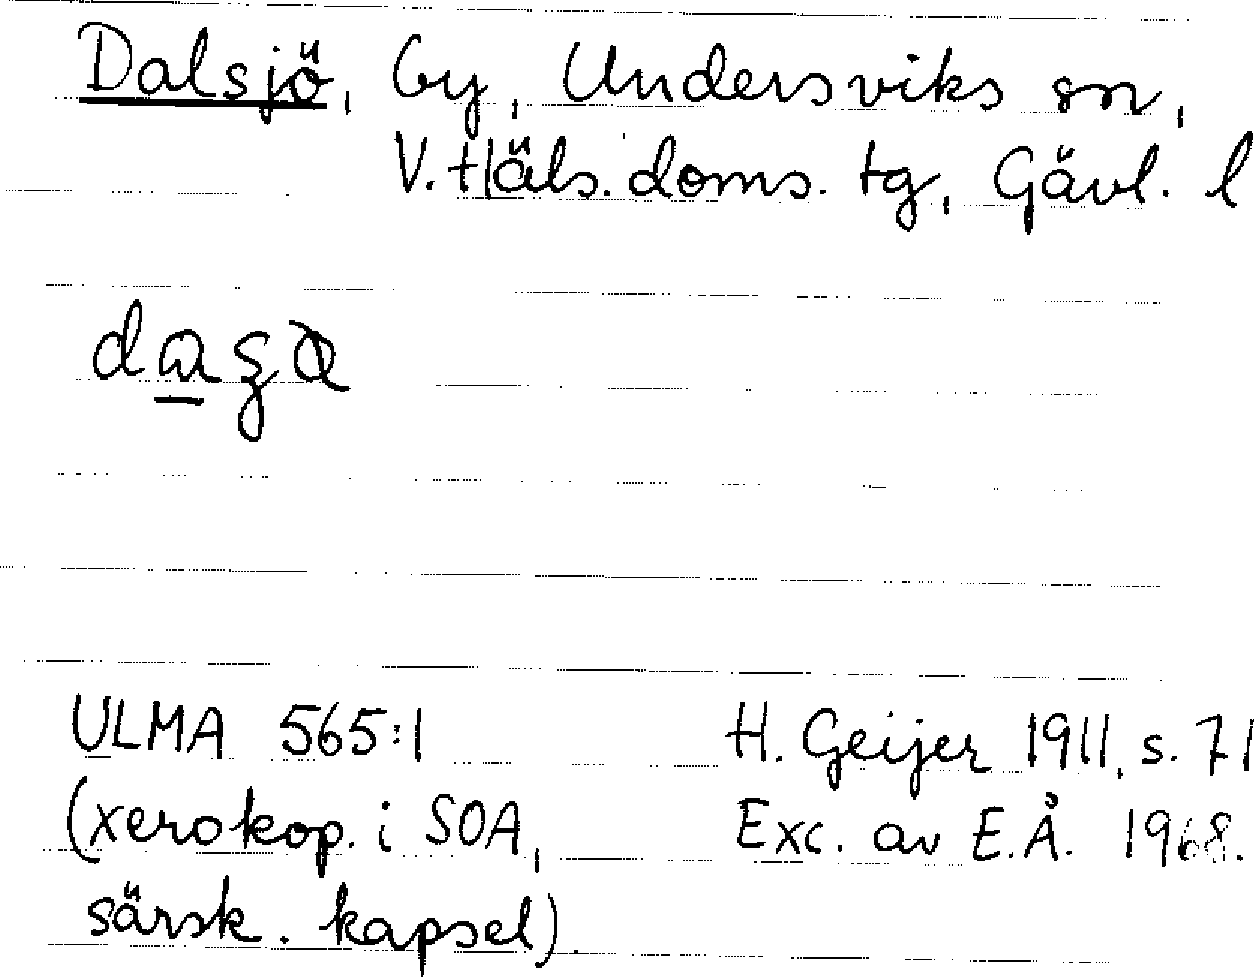 Dalsjö, by, Undersviks sn,
V. Häls. doms. tg, Gävl. l
ULMA 565:1
H. Geijer 1911, s. 71
(xerokop. i SOA,
Exc. av E.Å. 1968.
särsk. kapsel).